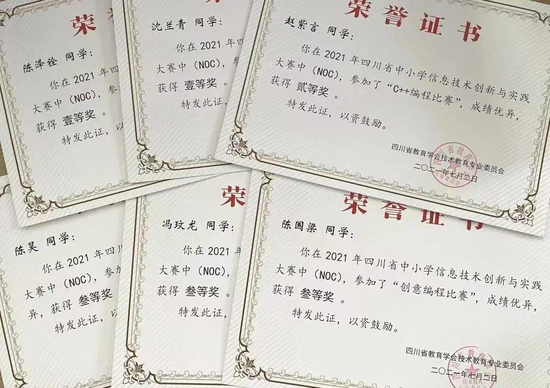 陈泽铨 同学：
你在2021年四
大赛中（NOC），
获得 壹等奖 。
特发此证，
沈兰青 同学：
你在2021年四
大赛中（NOC），
获得 壹等奖 。
特发此
荣誉证书
赵紫言 同学：
你在2021年四川省中小学信息技术创新与实践
大赛中（NOC），参加了“C++编程比赛”，成绩优异，
获得 贰等奖 。
特发此证，以资鼓励。
四川省教育学会技术教育专业委员会
二〇二一年七月二日
陈昊 同学：
你在2021年
大赛中（NOC），
异，获得 叁等奖 。
特发此证，以
冯玟龙 同学：
你在2021年四
大赛中（NOC），
获得 叁等奖 。
特发此证，
荣誉证书
陈国梁 同学：
你在2021年四川省中小学信息技术创新与实践
大赛中（NOC），参加了“创意编程比赛”，成绩优异，
获得 叁等奖 。
特发此证，以资鼓励。
四川省教育学会技术教育专业委员会
二〇二一年七月二日